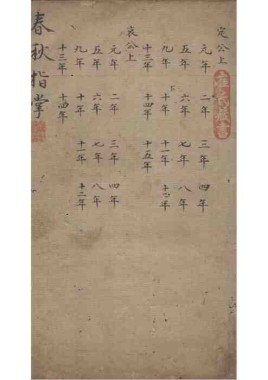 定公上
元年 二年 三年 四年
五年 六年 七年 八年
九年 十年 下 十一年 十二年
十三年 十四年 十五年
哀公上
元年 二年 三年 四年
五年 六年 七年 八年
九年 十年 十一年 十二年
十三年 十四年
春秋指掌